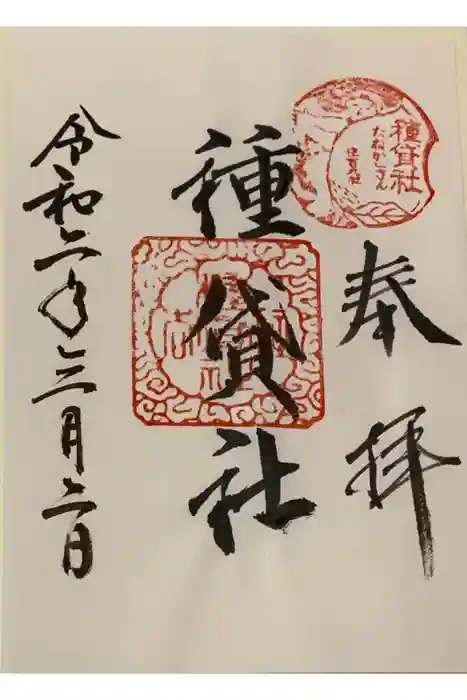 種貸社
たねかしさん
奉拝
種貸社
令和六年三月二日